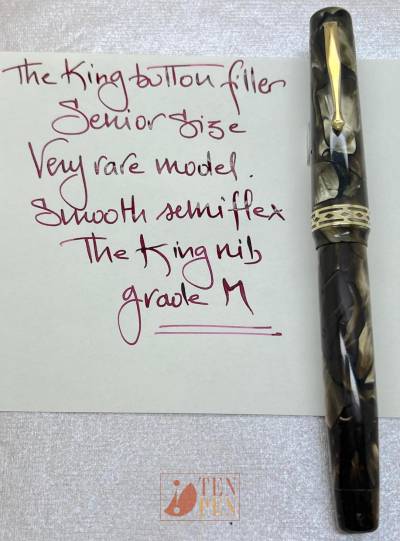 The King button filler
Senior Size
Very rare model.
Smooth semiflex
The King nib
grade M
TEN
PEN